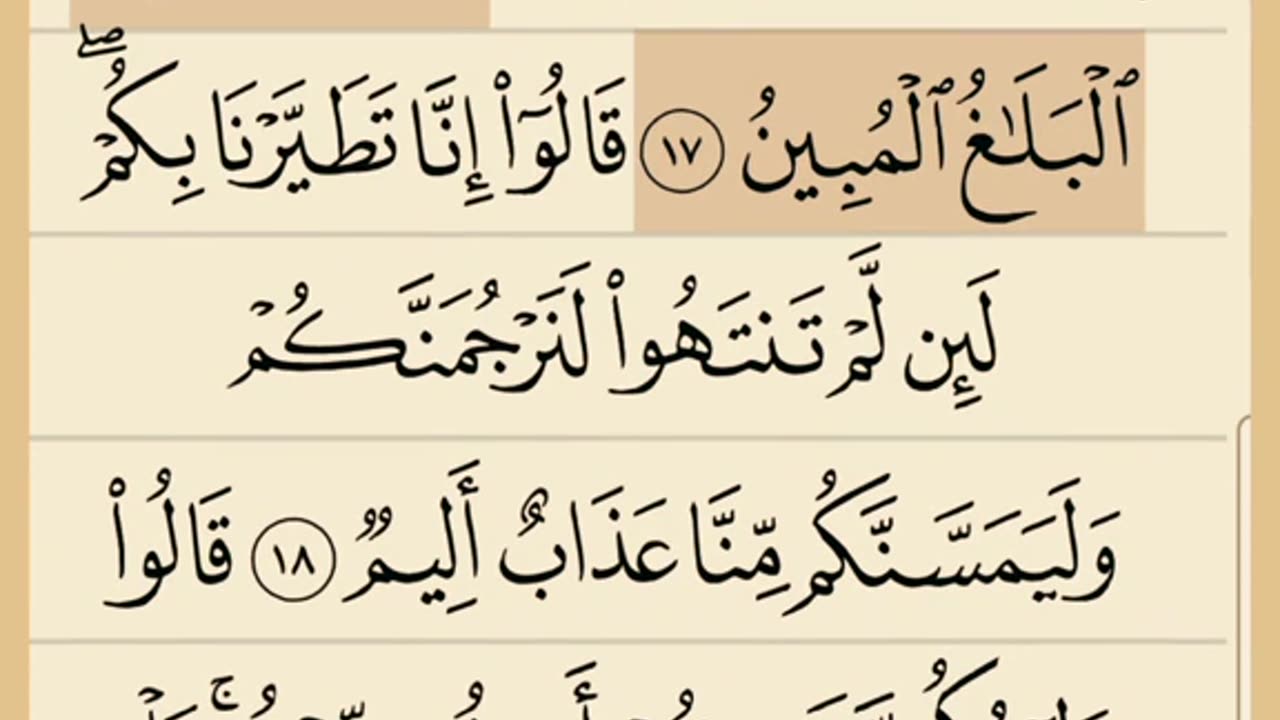 ٱلۡبَلَٰغُ ٱلۡمُبِينُ ١٧ قَالُوٓاْ إِنَّا تَطَيَّرۡنَا بِكُمۡۖ
لَئِن لَّمۡ تَنتَهُواْ لَنَرۡجُمَنَّكُمۡ
وَلَيَمَسَّنَّكُم مِّنَّا عَذَابٌ أَلِيمٞ ١٨ قَالُواْ